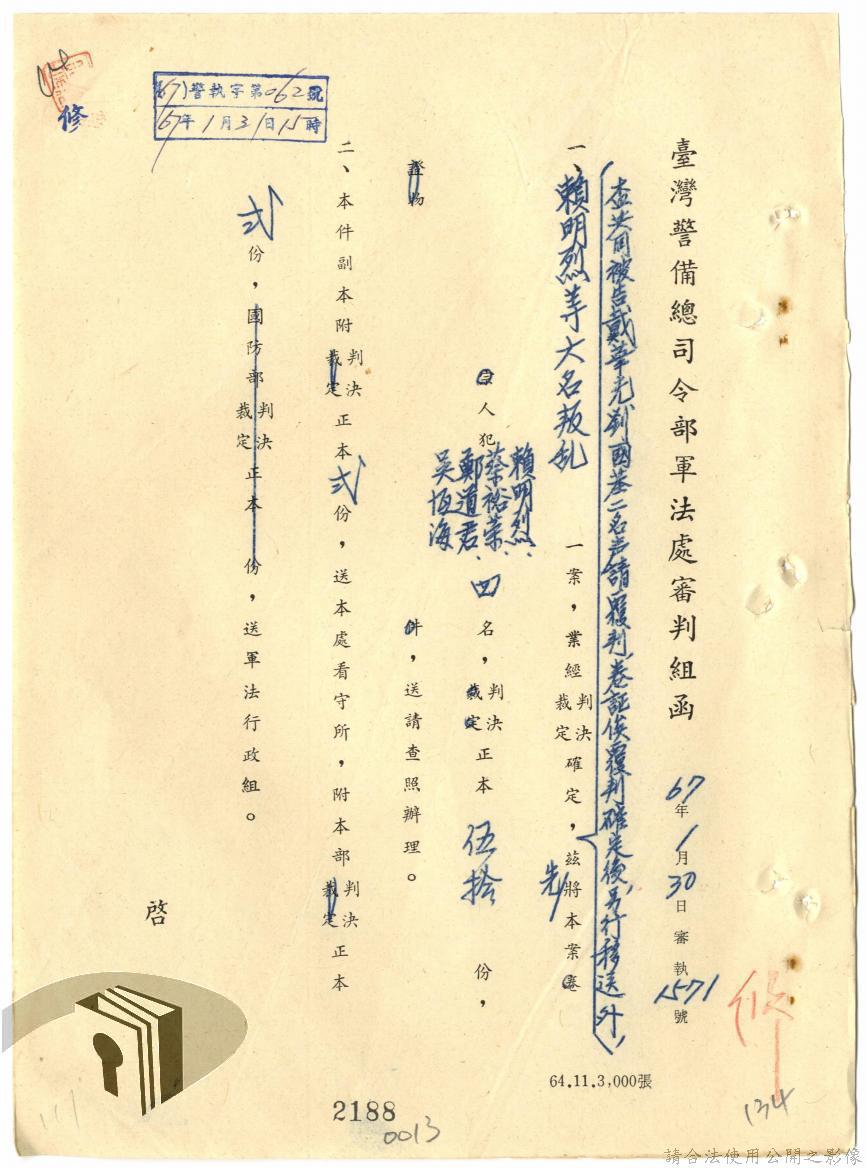 臺灣警備總司令部軍法處審判組函
67年1月30日審執1571號
(查共同被告戴華光劉國基二名声請覆判,卷証俟覆判確定後,另行移送外)
一、賴明烈等六名叛乱一案,業經判決裁定確定,茲先將本案卷
人犯賴明烈、蔡裕榮、鄭道君、吳恆海四名,判決裁定正本伍拾份,
證物件,送請查照辦理。
二、本件副本附判決裁定正本弍份,送本處看守所,附本部判決裁定正本
弍份,國防部判決裁定正本份,送軍法行政組。
啓
(67)警執字第062號
67年1月31日15時
修
修
64.11.3,000張
2188
0013
134
請合法使用公開之影像